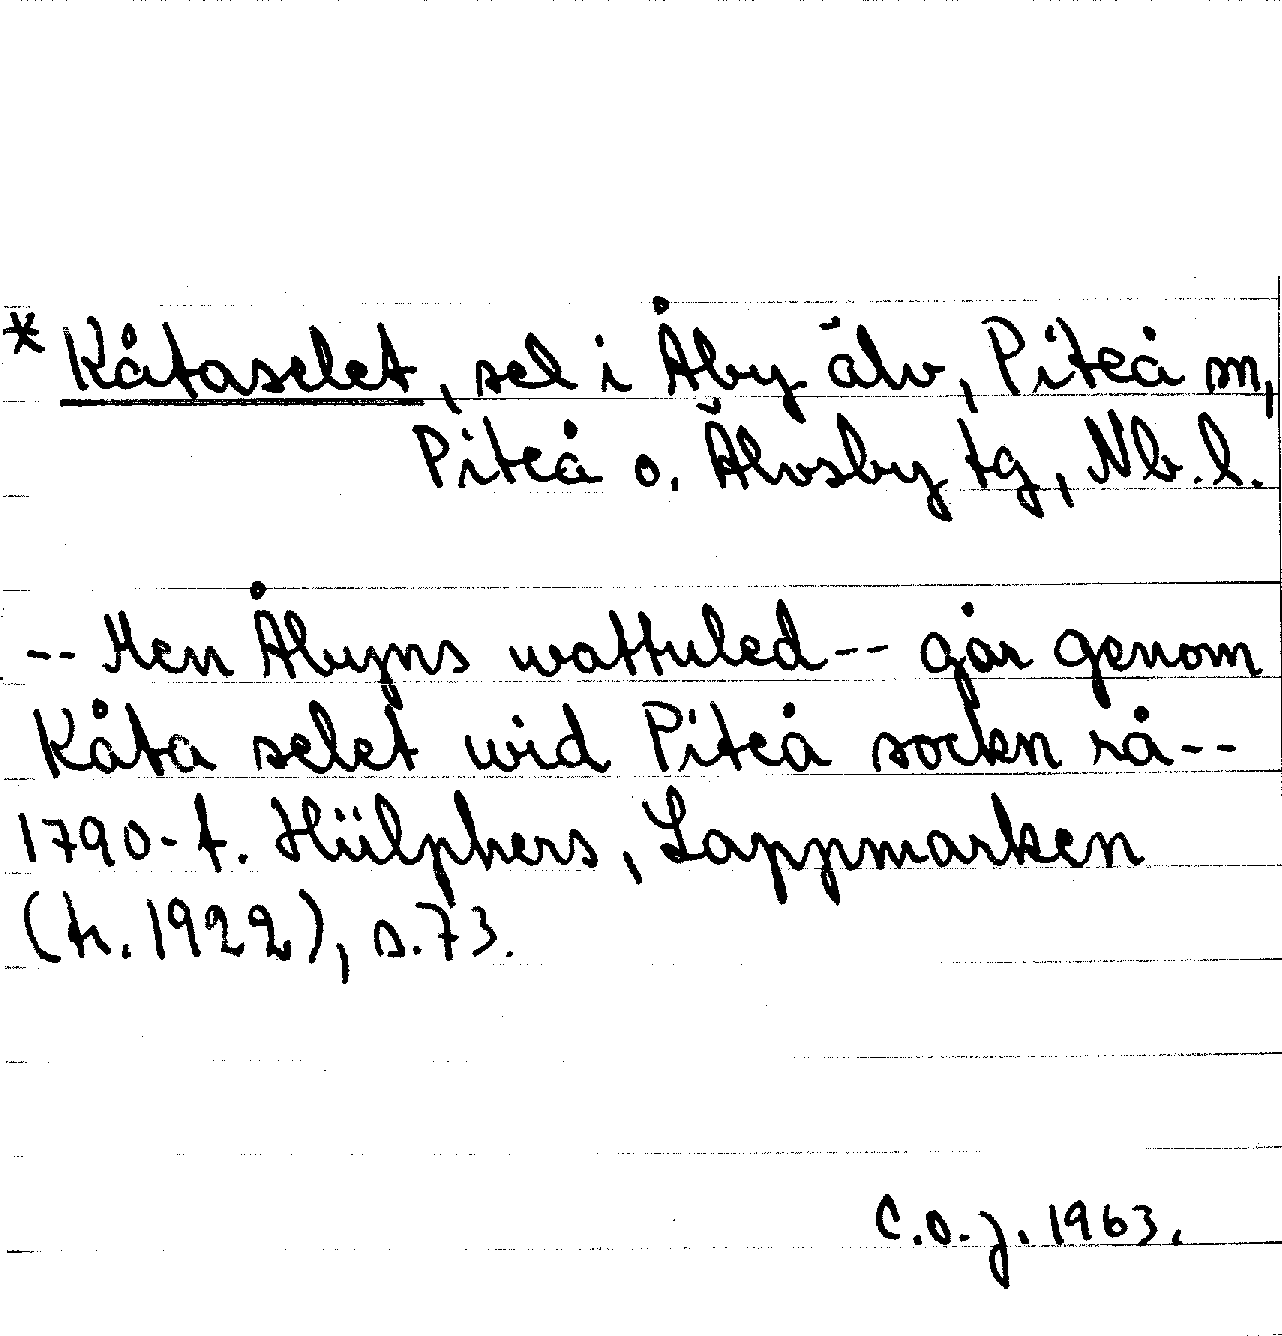 * Kåtaselet, sel i Åby älv, Piteå sn,
Piteå o. Älvsby tg, Nb. l.
-- Men Åbyns wattuled -- går genom
Kåta selet wid Piteå sockn rå --
1790-t. Hülphers, Lappmarken
(tr. 1922), s. 73.
C.O.J. 1963.